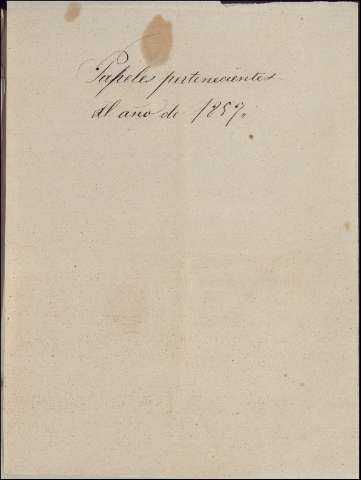 Papeles pertenecientes
al año de 1857.